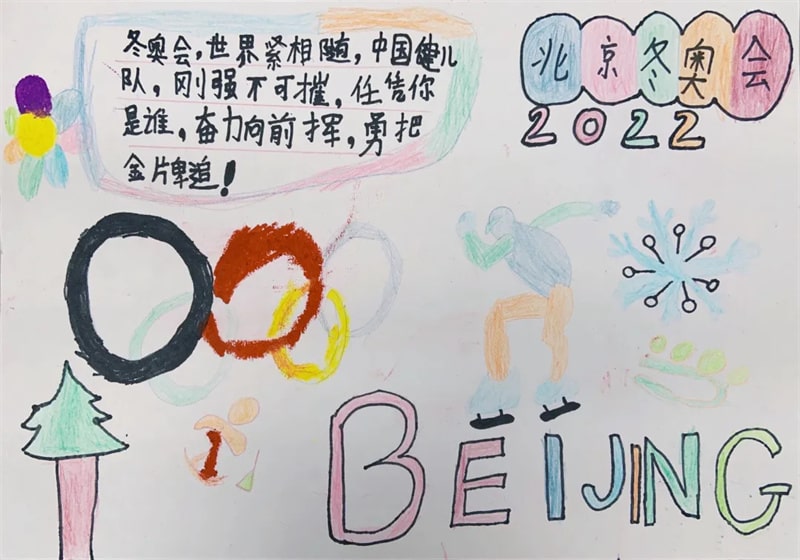 冬奥会,世界紧相随,中国健儿
队,刚强不可摧,任凭你
是谁,奋力向前挥,勇把
金牌追!
北京冬奥会
2022
BEIJING